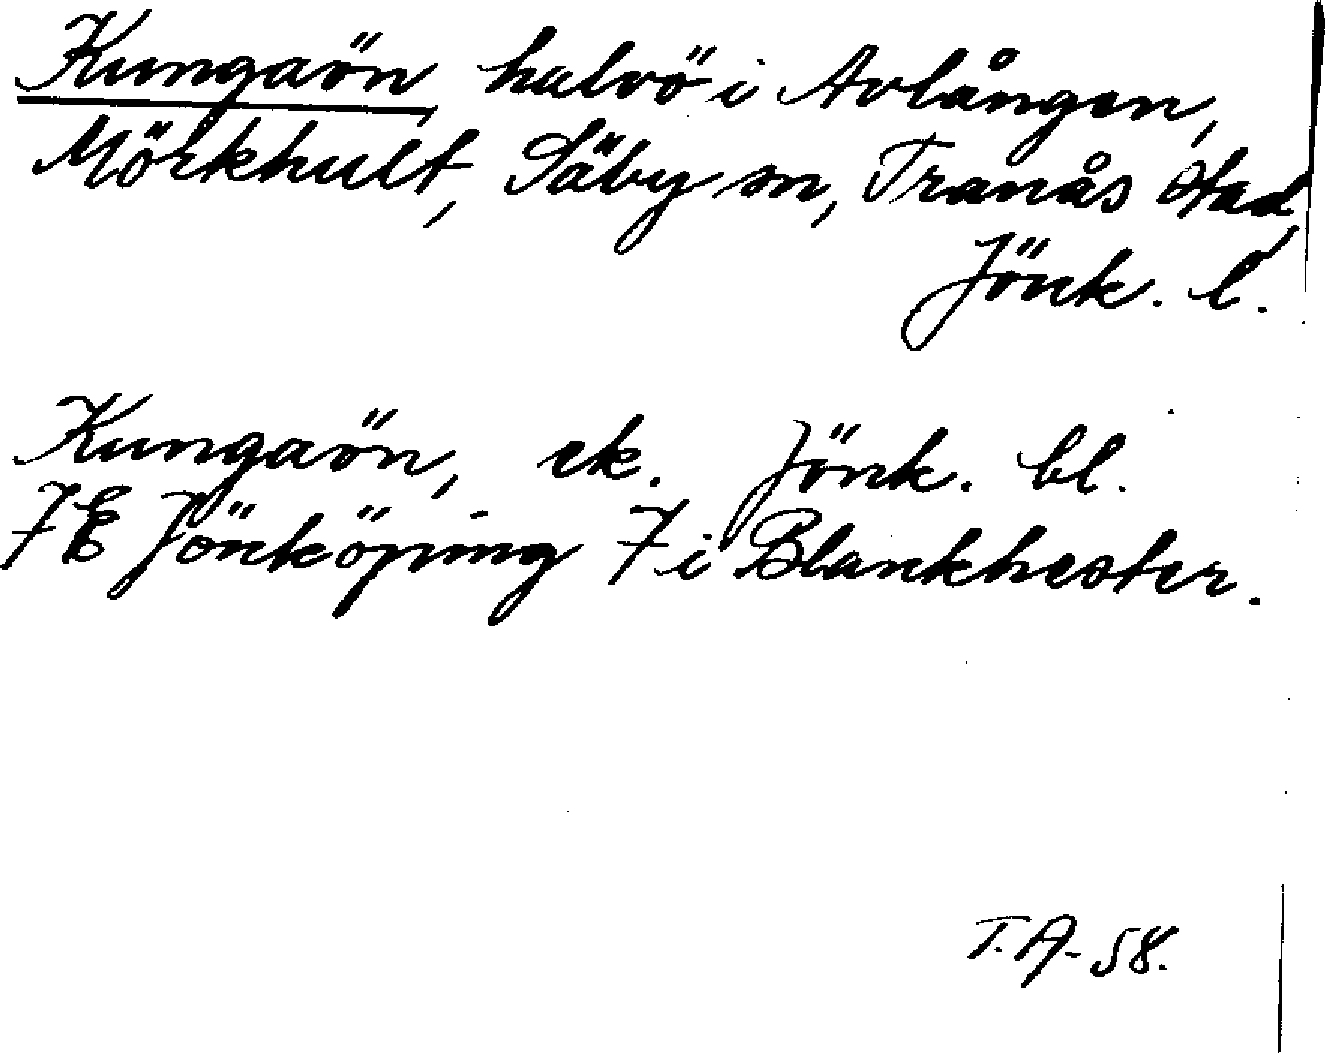 Kungaön, halvö i Avlången,
Mörkhult, Säby sn, Tranås stad,
Jönk. l.
Kungaön, ek. Jönk. bl.
7E Jönköping 7 i Blankhester.
T.A-58.